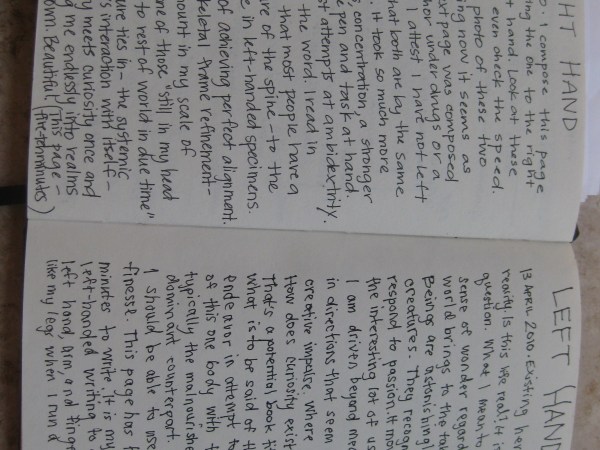 HT HAND
0. I compose this page
ing the one to the right
t hand. Look at these
even check the speed.
photo of these two
ing now it seems as
page was composed
hor under drugs or a
I attest I have not left
hat both are by the same
. It took so much more
, concentration, a stronger
e pen and task at hand.
st attempts at ambidexterity.
the word, I read in
that most people have a
re of the spine - to the
e in left-handed specimens.
of achieving perfect alignment.
keletal frame refinement -
mount in my scale of
ne of those "still in my head
to rest of world in due time"
ure ties in - the systemic
's interaction with itself -
y meets curiosity once and
g me endlessly into realms
own. Beautiful. (This page -
five-ten minutes)
LEFT HAND
13 APRIL 2010. Existing her
reality. Is this like real? It is
question. What I mean to
sense of wonder regard
world brings to the tab
Beings are astonishingl
creatures. They recogn
respond to passion. It mov
the interesting lot of us
I am driven beyond me
in directions that seem
creative impulse. Where
How does curiosity exist
That's a potential book ti
What is to be said of th
endeavor in attempt to
of this one body with t
typically the malnourishe
dominant counterpart.
I should be able to use
finesse. This page has t
minutes to write. It is my
left-handed writing to
left hand, arm, and finge
like my legs when I run a